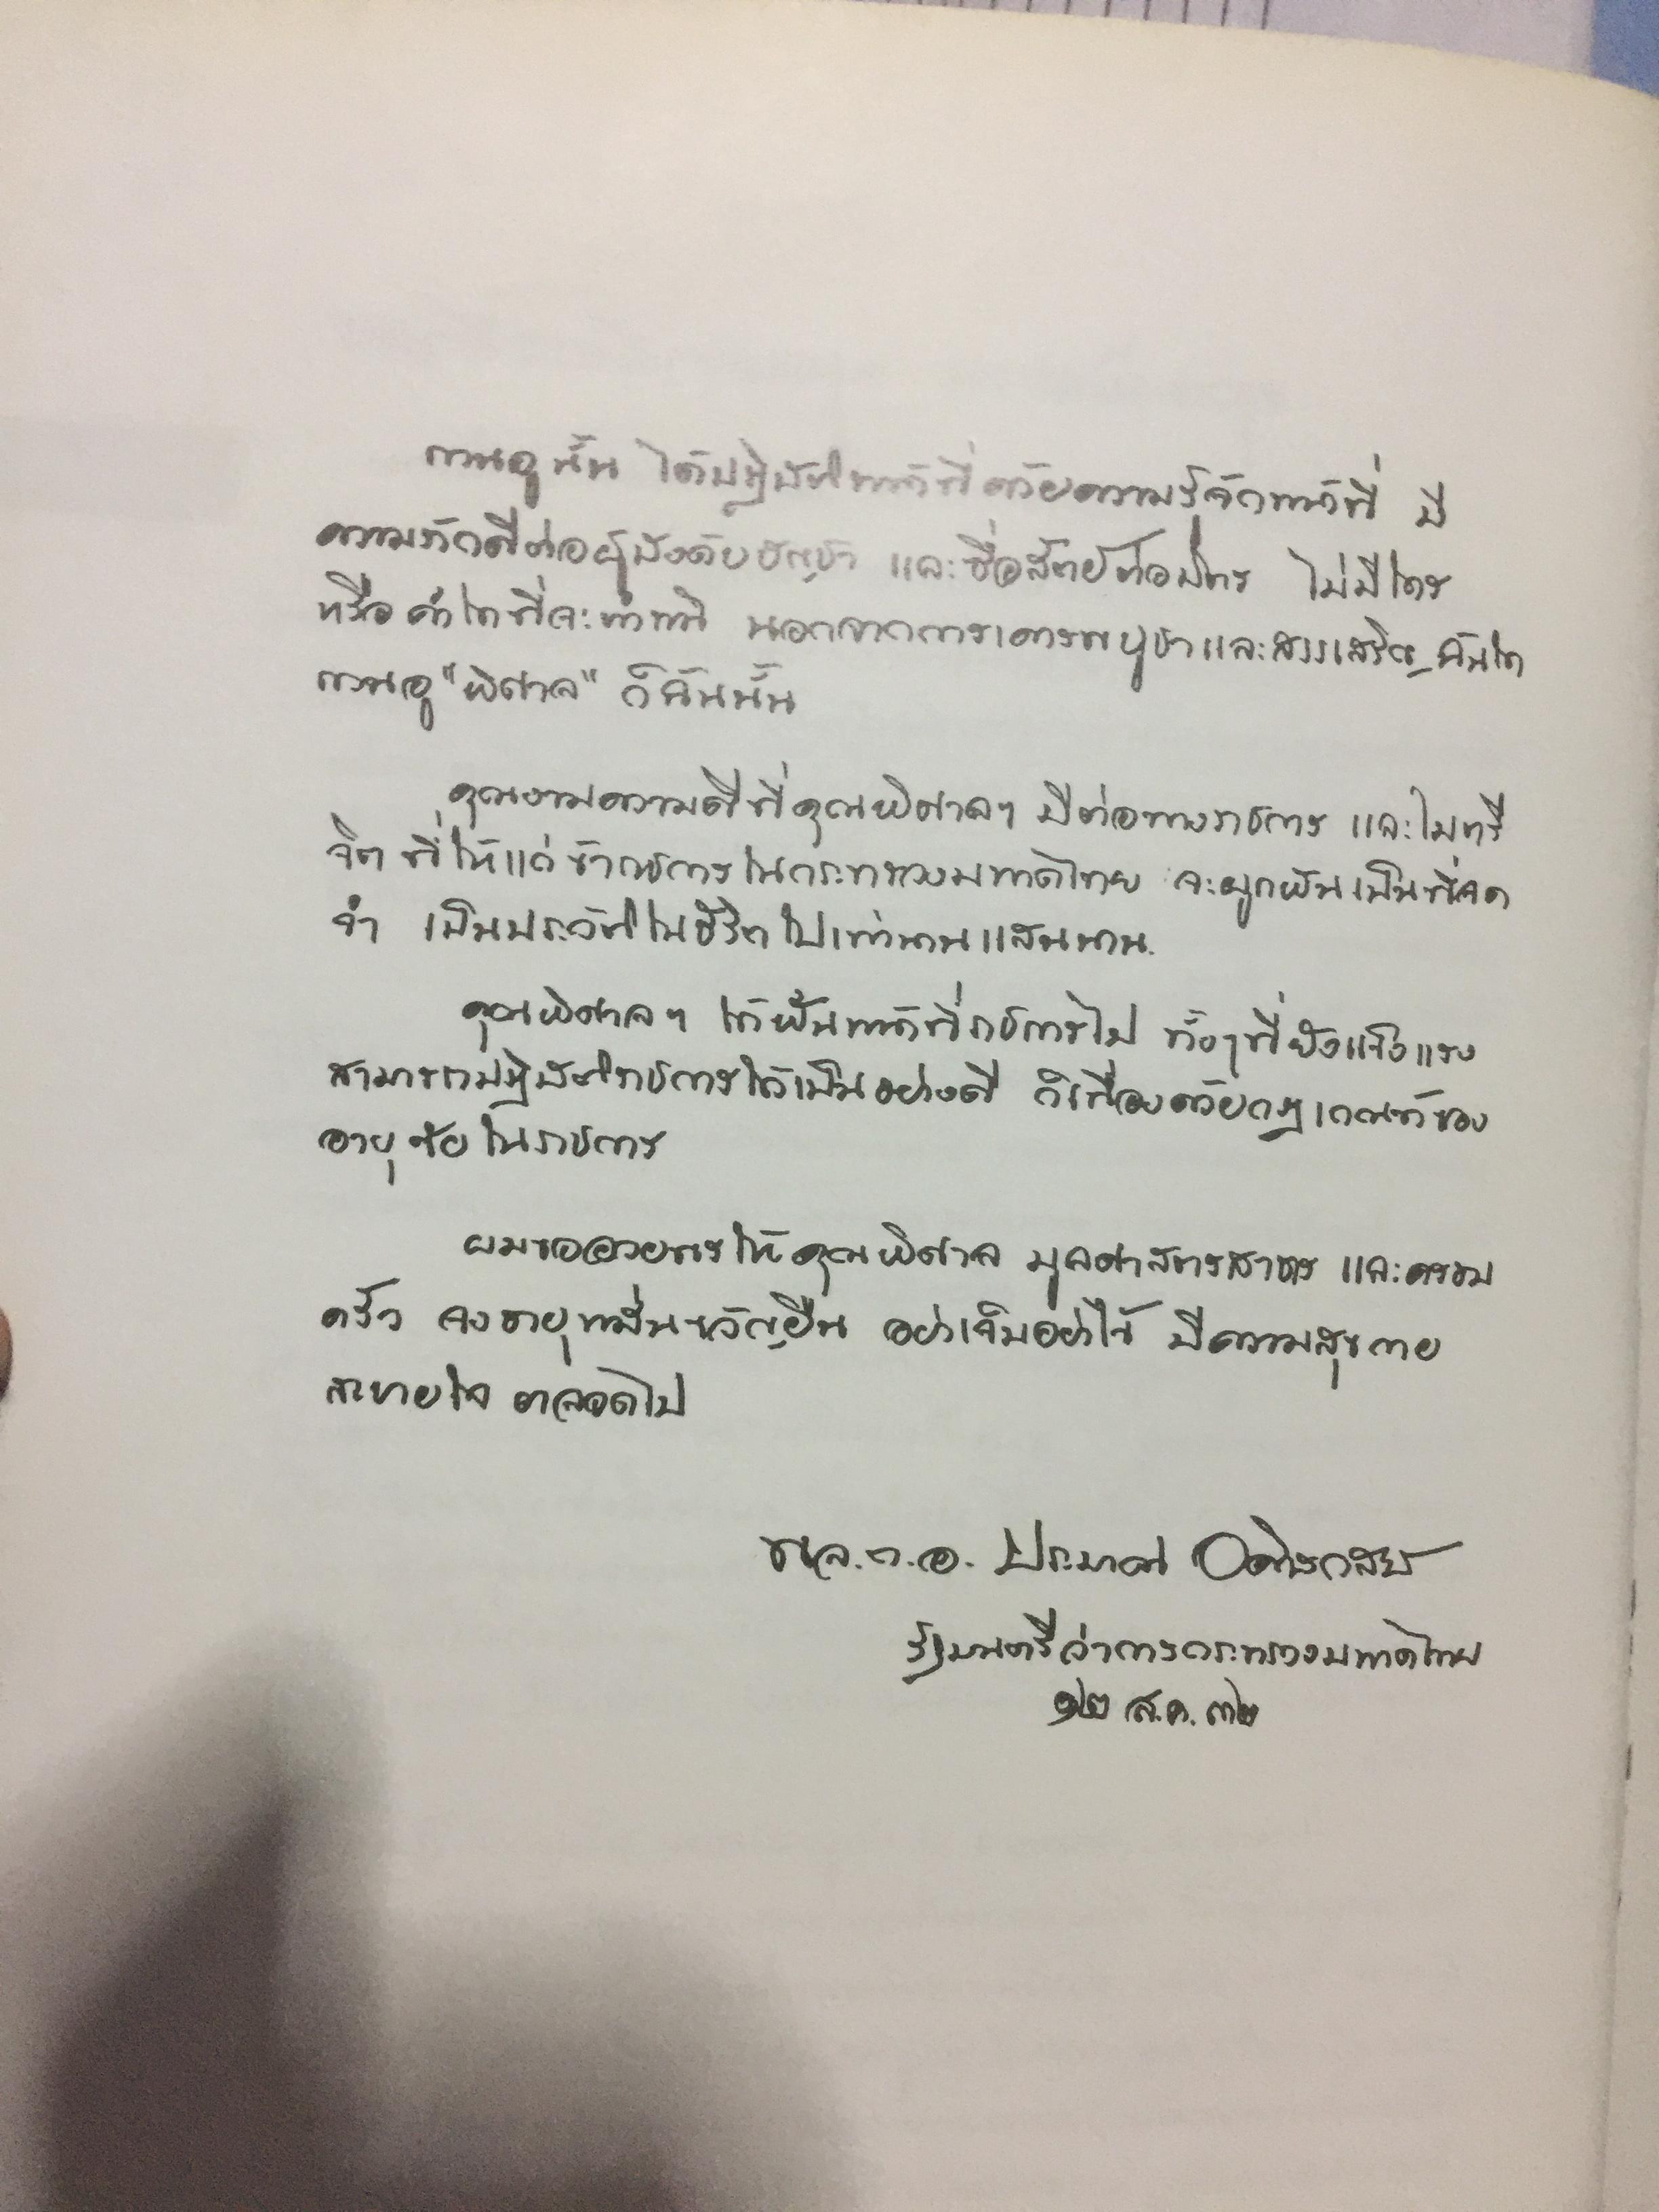 กวนอูนั้น ได้ปฏิบัติหน้าที่ด้วยความรู้จักหน้าที่ มี
ความภักดีต่อผู้บังคับบัญชา และซื่อสัตย์ต่อมิตร ไม่มีใคร
หรือคำใดที่จะตำหนิ นอกจากการเคารพบูชาและสรรเสริญ ฉันใด
กวนอู "พิศาล" ก็ฉันนั้น
คุณงามความดีที่คุณพิศาลฯ มีต่อทางราชการ และไมตรี
จิต ที่ให้แก่ข้าราชการในกระทรวงมหาดไทย จะผูกพันเป็นที่จด
จำ เป็นประวัติในชีวิตไปเท่านานแสนนาน.
คุณพิศาลฯ ได้พ้นหน้าที่ราชการไป ทั้งๆที่ยังแข็งแรง
สามารถปฏิบัติราชการได้เป็นอย่างดี ก็เนื่องด้วยกฎเกณฑ์ของ
อายุขัยในราชการ
ผมขออวยพรให้คุณพิศาล มูลศาสตรสาทร และครอบ
ครัว จงอายุหมั่นขวัญยืน อย่าเจ็บอย่าไข้ มีความสุขกาย
สบายใจ ตลอดไป
พล.ต.อ. ประมาณ อดิเรกสาร
รัฐมนตรีว่าการกระทรวงมหาดไทย
๑๒ ส.ค. ๓๒